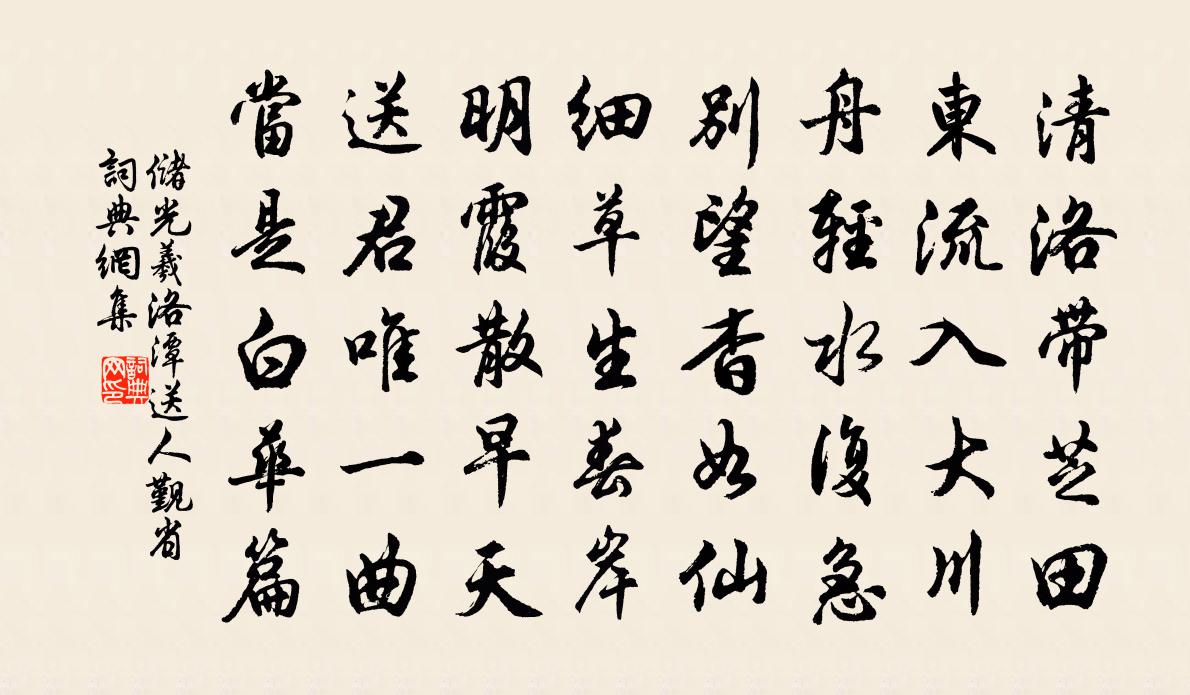 清洛帶芝田
東流入大川
舟輕水復急
別望杳如仙
細草生春岸
明霞散早天
送君唯一曲
當是白華篇
儲光羲洛潭送人覲省
詞典網集
詞典网印